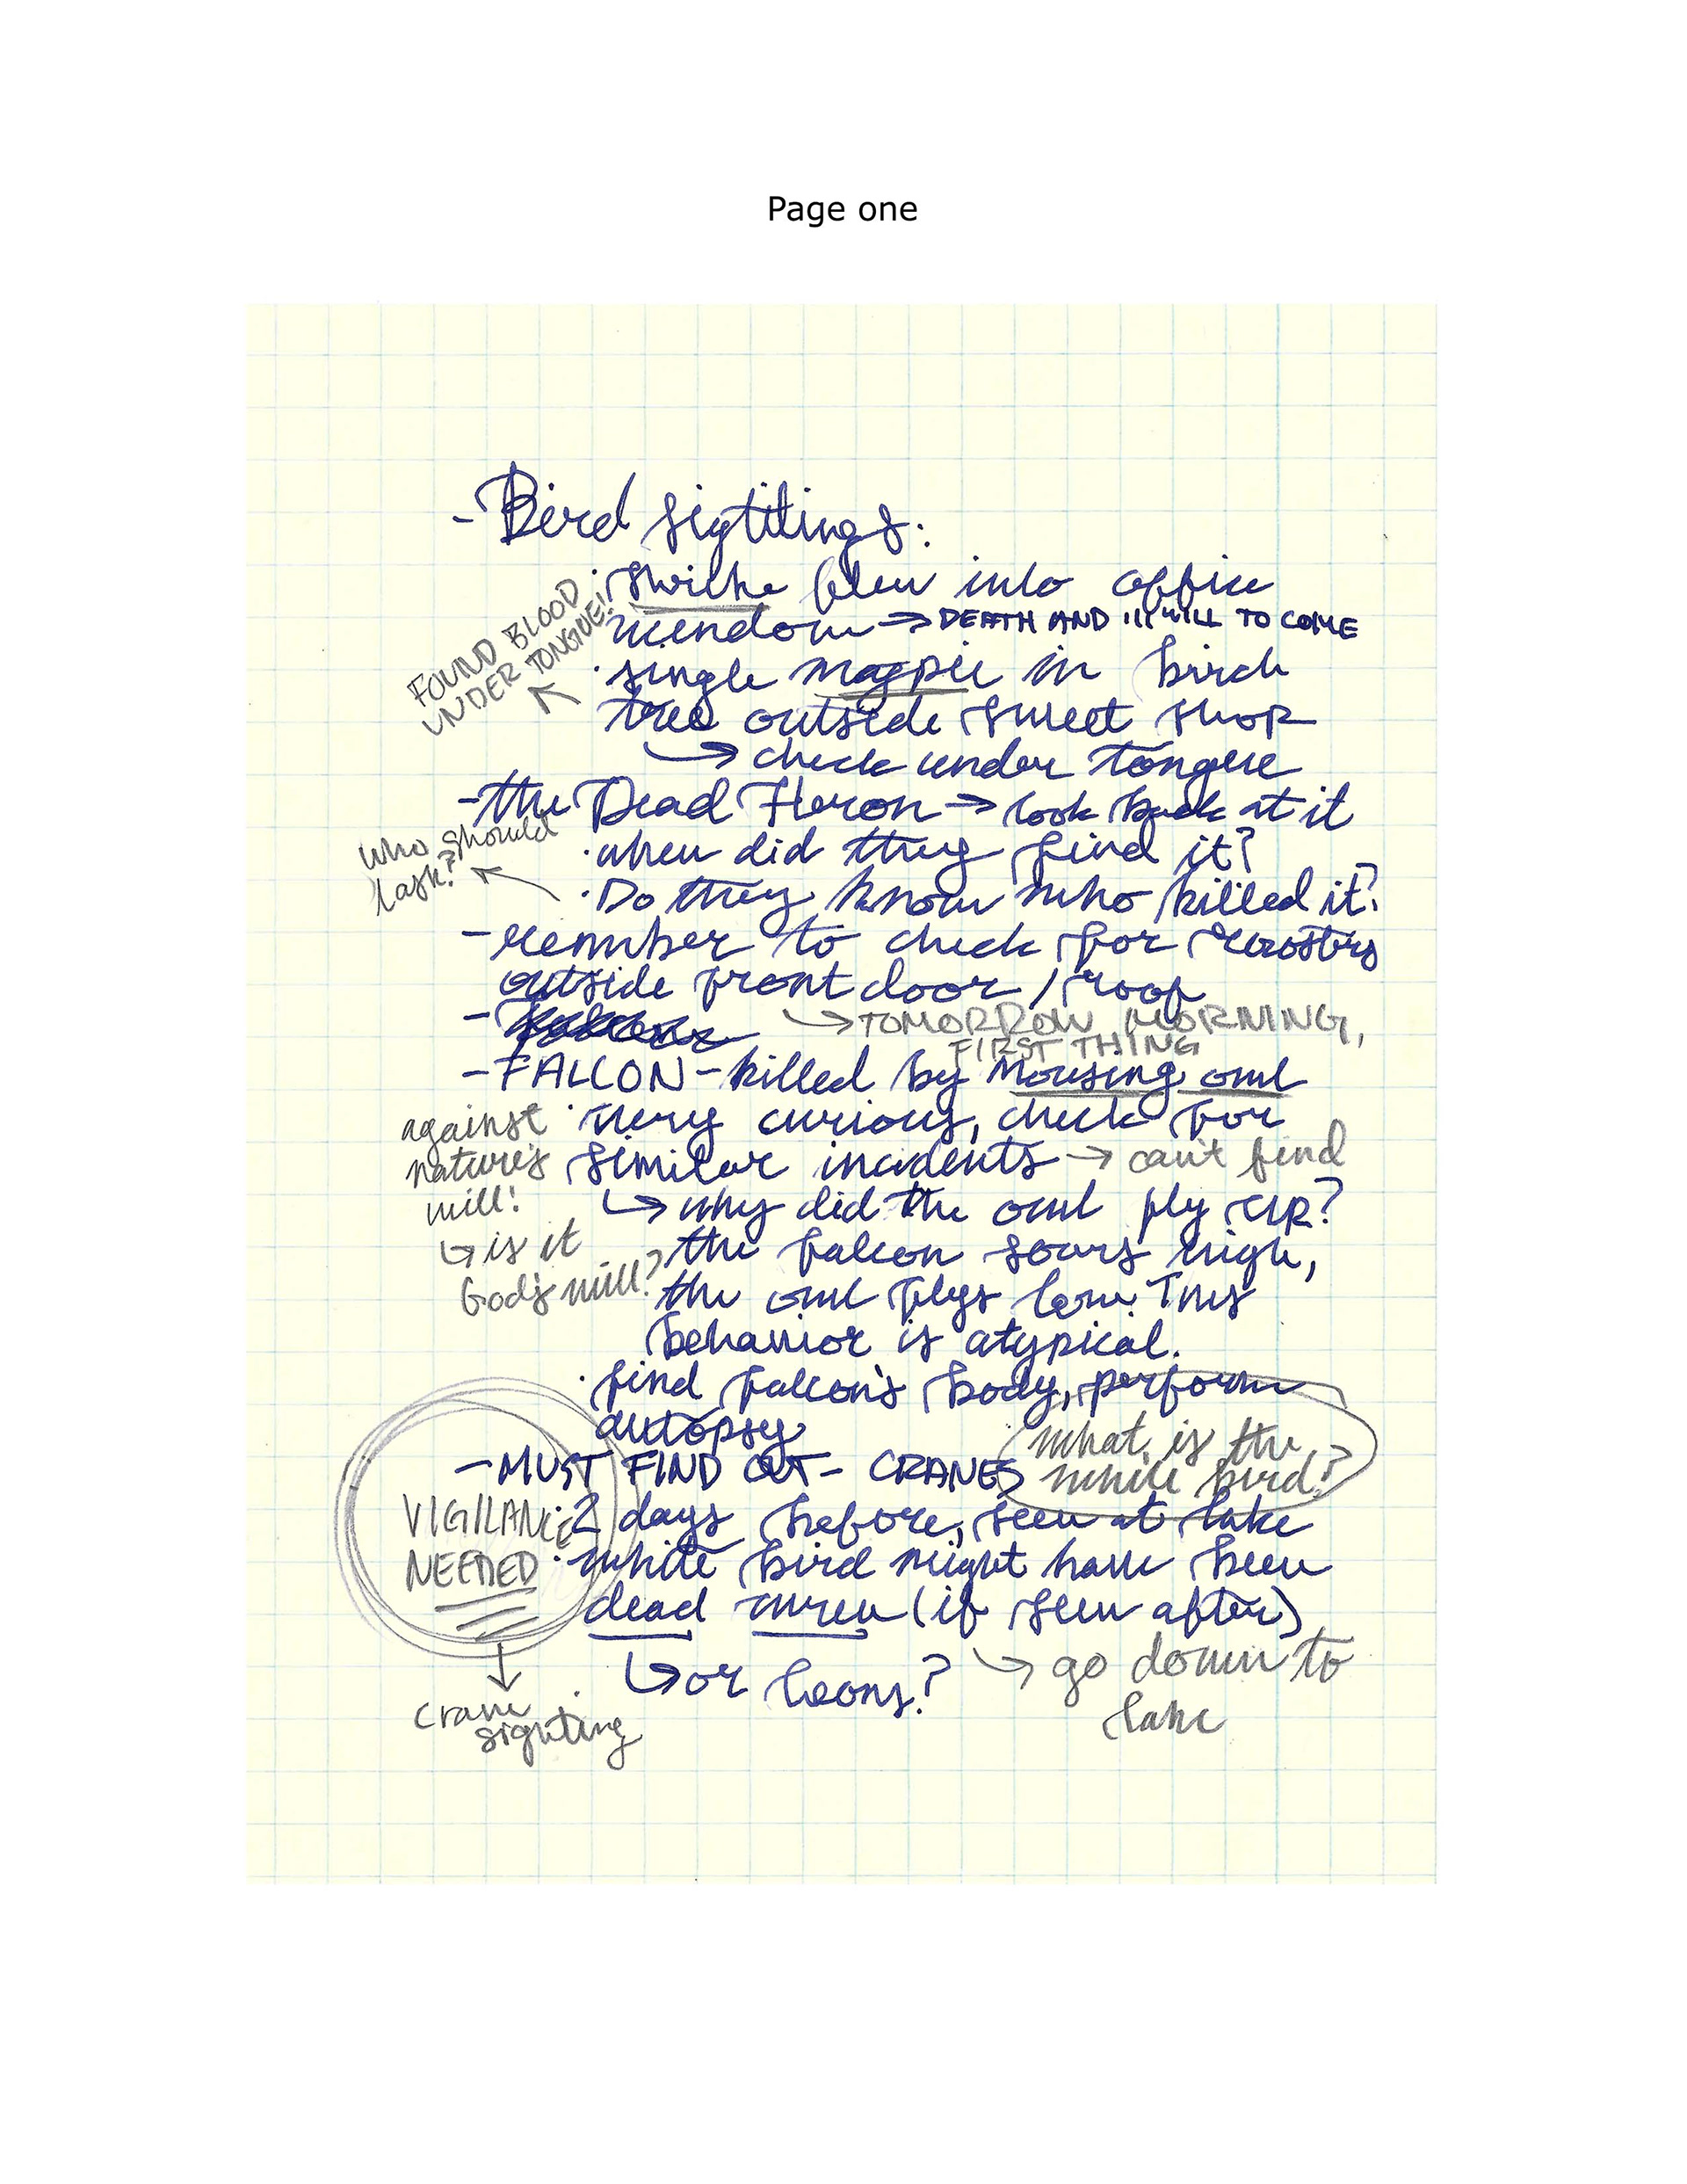 Page one
- Bird sigtitings:
· shrike flew into office
window → DEATH AND ill WILL TO COME
FOUND BLOOD
UNDER TONGUE!
· single magpie in birch
tree outside sweet shop
↳ check under tongue
- the Dead Heron → look back at it
· when did they find it?
who should
I ask?
· Do they know who killed it?
- remmber to check for roosters
outside front door / roof
→ TOMORROW MORNING,
FIRST THING
-
- FALCON - killed by mousing owl
· very curious, check for
similar incidents → can't find
against
nature's
will!
↳ is it
God's will?
↳ why did the owl fly up?
the falcon soars high,
the owl flys low. This
behavior is atypical.
· find falcon's body, perform
autopsy
- MUST FIND OUT - CRANES
what is the
white bird?
VIGILANCE
NEEDED
↓
crane
sighting
· 2 days before, seen at lake
· white bird might have been
dead wren (if seen after)
↳ or loons?
→ go down to
lake